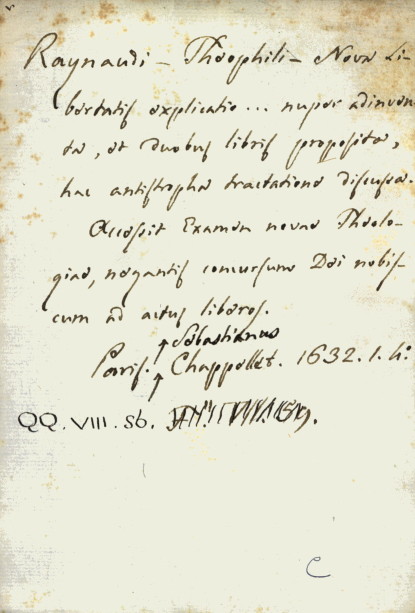 Raynaudi - Theophili - Nova Li-
bertatis explicatio ... nuper adinven
ta, et duobus libris proposita,
hac antistropha tractatione discussa.
Accessit Examen novae Theolo-
giae, negantis concursum Dei nobis-
cum ad actus liberos.
Sebastianus
Paris. Chappellet. 1632. 1. 4:
QQ. VIII. 56.
C